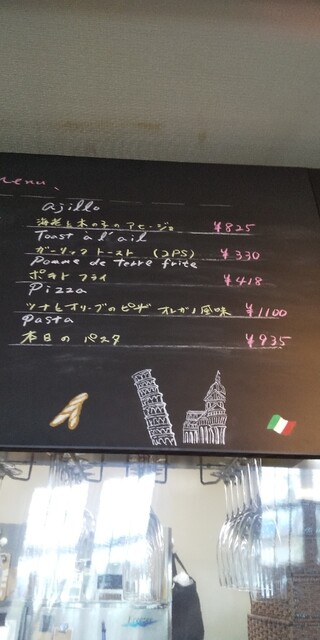 menu、
ajillo
海老と木の子のアヒージョ ¥825
Toast à l'ail
ガーリックトースト (2PS) ¥330
Pomme de terre frite
ポテトフライ ¥418
Pizza
ツナとオリーブのピザ オレガノ風味 ¥1100
pasta
本日のパスタ ¥935